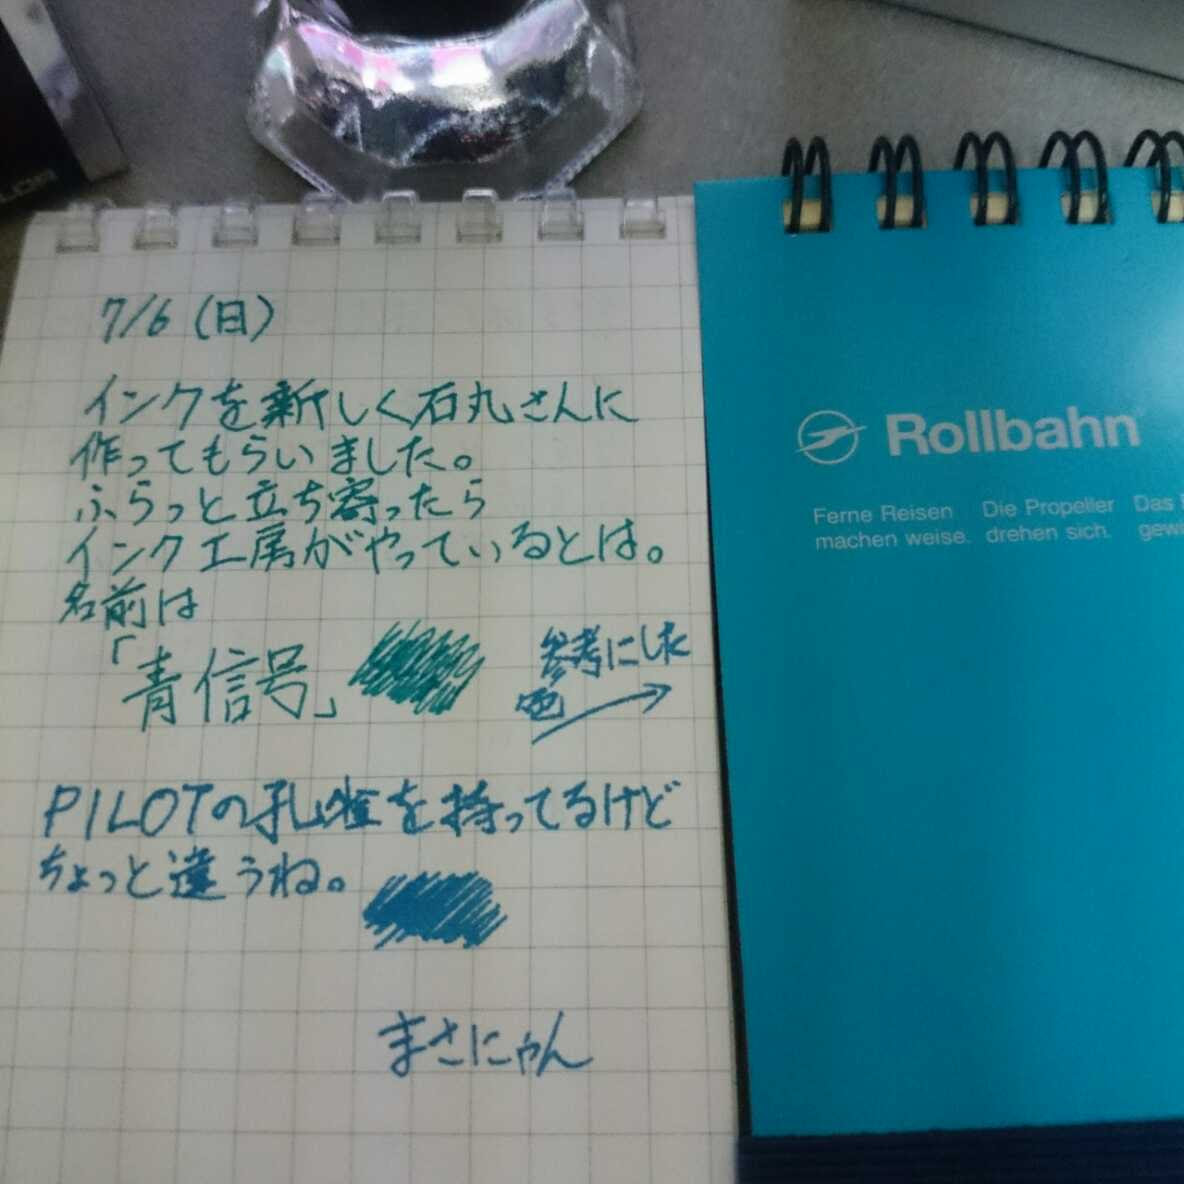 7/6 (日)
インクを新しく石丸さんに
作ってもらいました。
ふらっと立ち寄ったら
インク工房がやっているとは。
名前は
「青信号」
参考にした
色
PILOTの孔雀を持ってるけど
ちょっと違うね。
まさにゃん
Rollbahn
Ferne Reisen
machen weise.
Die Propeller
drehen sich.
Das